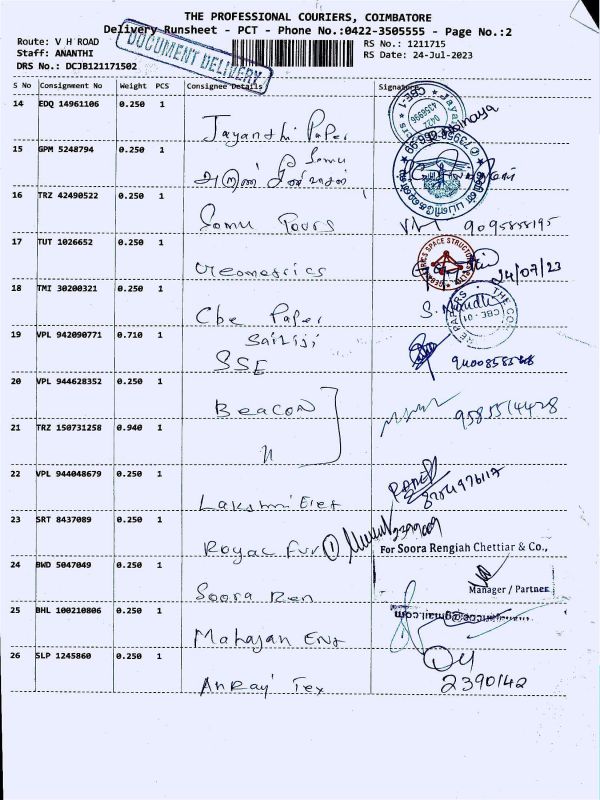 THE PROFESSIONAL COURIERS, COIMBATORE
Delivery Runsheet - PCT - Phone No.:0422-3505555 - Page No.:2
DOCUMENT DELIVERY
Route: V H ROAD
Staff: ANANTHI
DRS No.: DCJB121171502
RS No.: 1211715
RS Date: 24-Jul-2023
S No Consignment No Weight PCS Consignee Details Signature
14 EDQ 14961106 0.250 1
Jayanthi Paper
15 GPM 5248794 0.250 1
Somu
16 TRZ 42490522 0.250 1
Somu Tours
17 TUT 1026652 0.250 1
Geometrics 24/07/23
18 TMI 30200321 0.250 1
Cbe Paper
19 VPL 942090771 0.710 1
Sailiji
SSE
20 VPL 944628352 0.250 1
Beacon
21 TRZ 150731258 0.940 1
22 VPL 944048679 0.250 1
Lakshmi Elet
23 SRT 8437089 0.250 1
Royal Fur 1
For Soora Rengiah Chettiar & Co.,
24 BWD 5047049 0.250 1
Manager / Partner
Soora Ren
25 BHL 100210806 0.250 1
Mahajan Ent
26 SLP 1245860 0.250 1
Anraj Tex 2390142